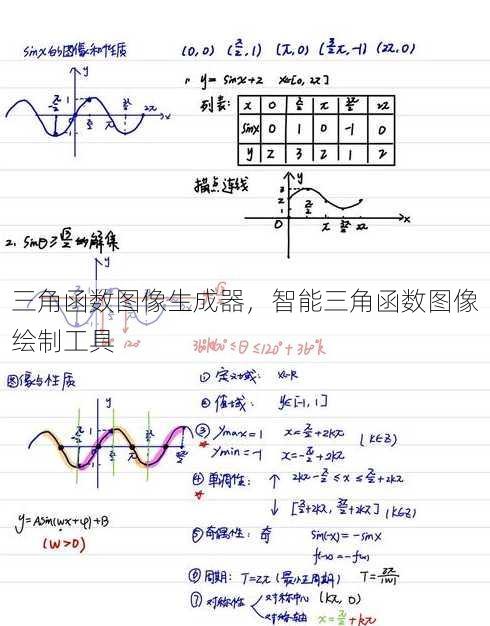 sinx的图像和性质
(0,0) (π/2,1) (π,0) (3/2π,-1) (2π,0)
1. y = sinx+2 x∈[0,2π]
列表:
x 0 π/2 π 3π/2 2π
sinx 0 1 0 -1 0
y 2 3 2 1 2
描点连线
三角函数图像生成器，智能三角函数图像
绘制工具
120°
≤θ≤120°+360°k
图像与性质
① 定义域: x∈R
② 值域: y∈[-1,1]
③ ymax=1 x=π/2+2kπ (k∈Z)
ymin=-1 x=-π/2+2kπ
④ 单调性: ↑ 2kπ-π/2≤x≤π/2+2kπ
↓ [π/2+2kπ, 3π/2+2kπ] (k∈Z)
y=Asin(wx+φ)+B
(w>0)
⑤ 奇偶性: 奇 sin(-x)=-sinx
f(-x)=-f(x)
⑥ 周期: T=2π (最小正周期) T=2π/|w|
⑦ 对称性 对称中心 (kπ,0)
对称轴 x=π/2+kπ